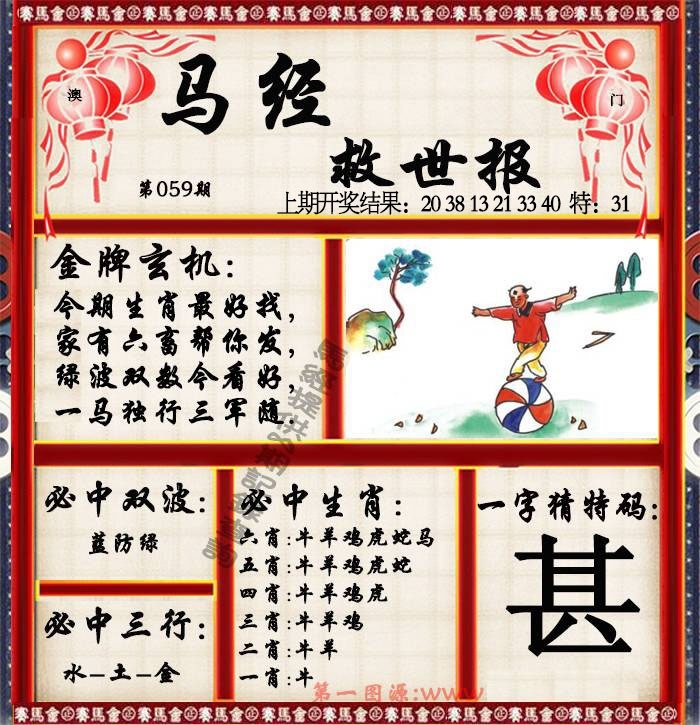 賽馬會 賽馬會 賽馬會 賽馬會 賽馬會 賽馬會 賽馬會
澳
门
马经
救世报
第059期
上期开奖结果：20 38 13 21 33 40 特：31
金牌玄机：
今期生肖最好找，
家有六畜帮你发，
绿波双数今看好，
一马独行三军随.
必中双波：
蓝防绿
必中三行：
水–土–金
必中生肖：
六肖:牛羊鸡虎蛇马
五肖:牛羊鸡虎蛇
四肖:牛羊鸡虎
三肖:牛羊鸡
二肖:牛羊
一肖:牛
一字猜特码：
甚
第一图源:www